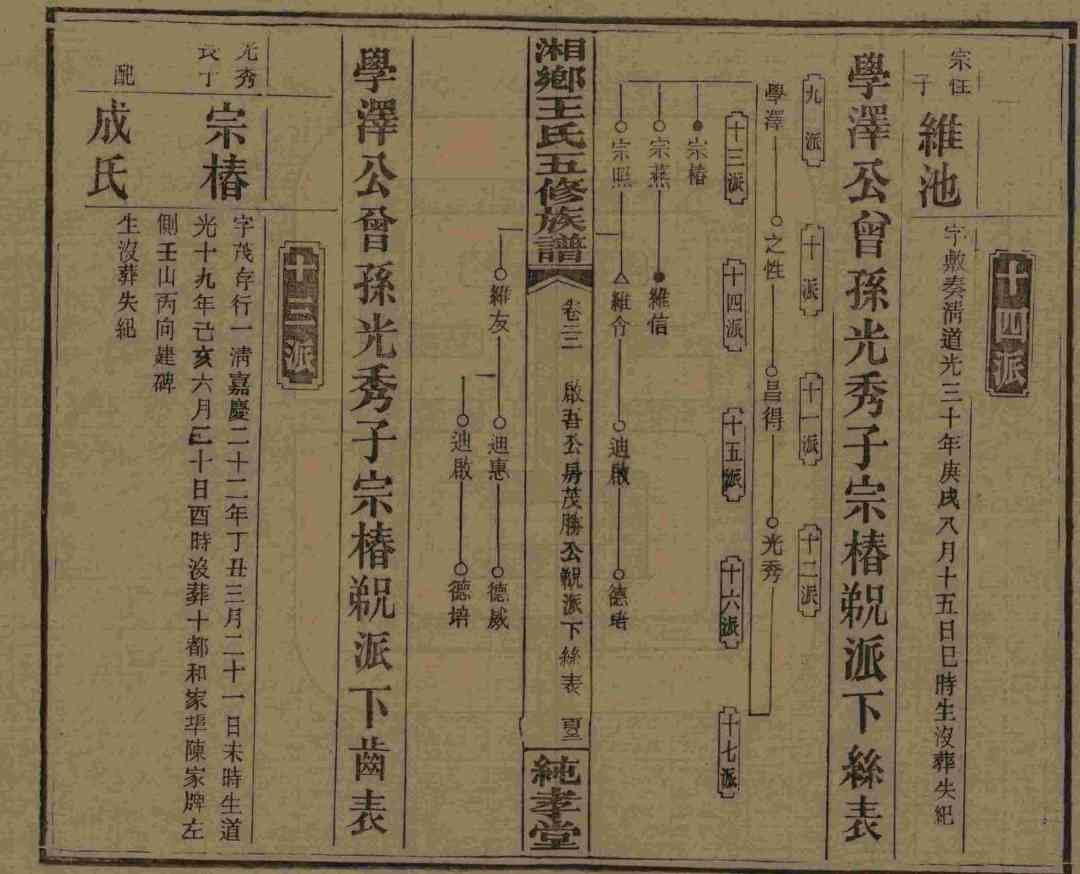 十四派
宗任
子
維池
字敷奏清道光三十年庚戌八月十五日巳時生沒葬失紀
學澤公曾孫光秀子宗椿派下絲表
九派
十派
十一派
十二派
學澤
之性
昌得
光秀
十三派
十四派
十五派
十六派
十七派
宗椿
宗燕
維信
宗照
維含
迪啟
德培
湘鄉王氏五修族譜
卷三三
啟吾公房茂勝公派下絲表
純孝堂
維友
迪惠
德威
迪啟
德培
學澤公曾孫光秀子宗椿派下齒表
十三派
光秀
長子
宗椿
字茂存行一清嘉慶二十二年丁丑三月二十一日未時生道
光十九年己亥六月二十日酉時沒葬十都和家陳家牌左
側壬山丙向建碑
配
成氏
生沒葬失紀